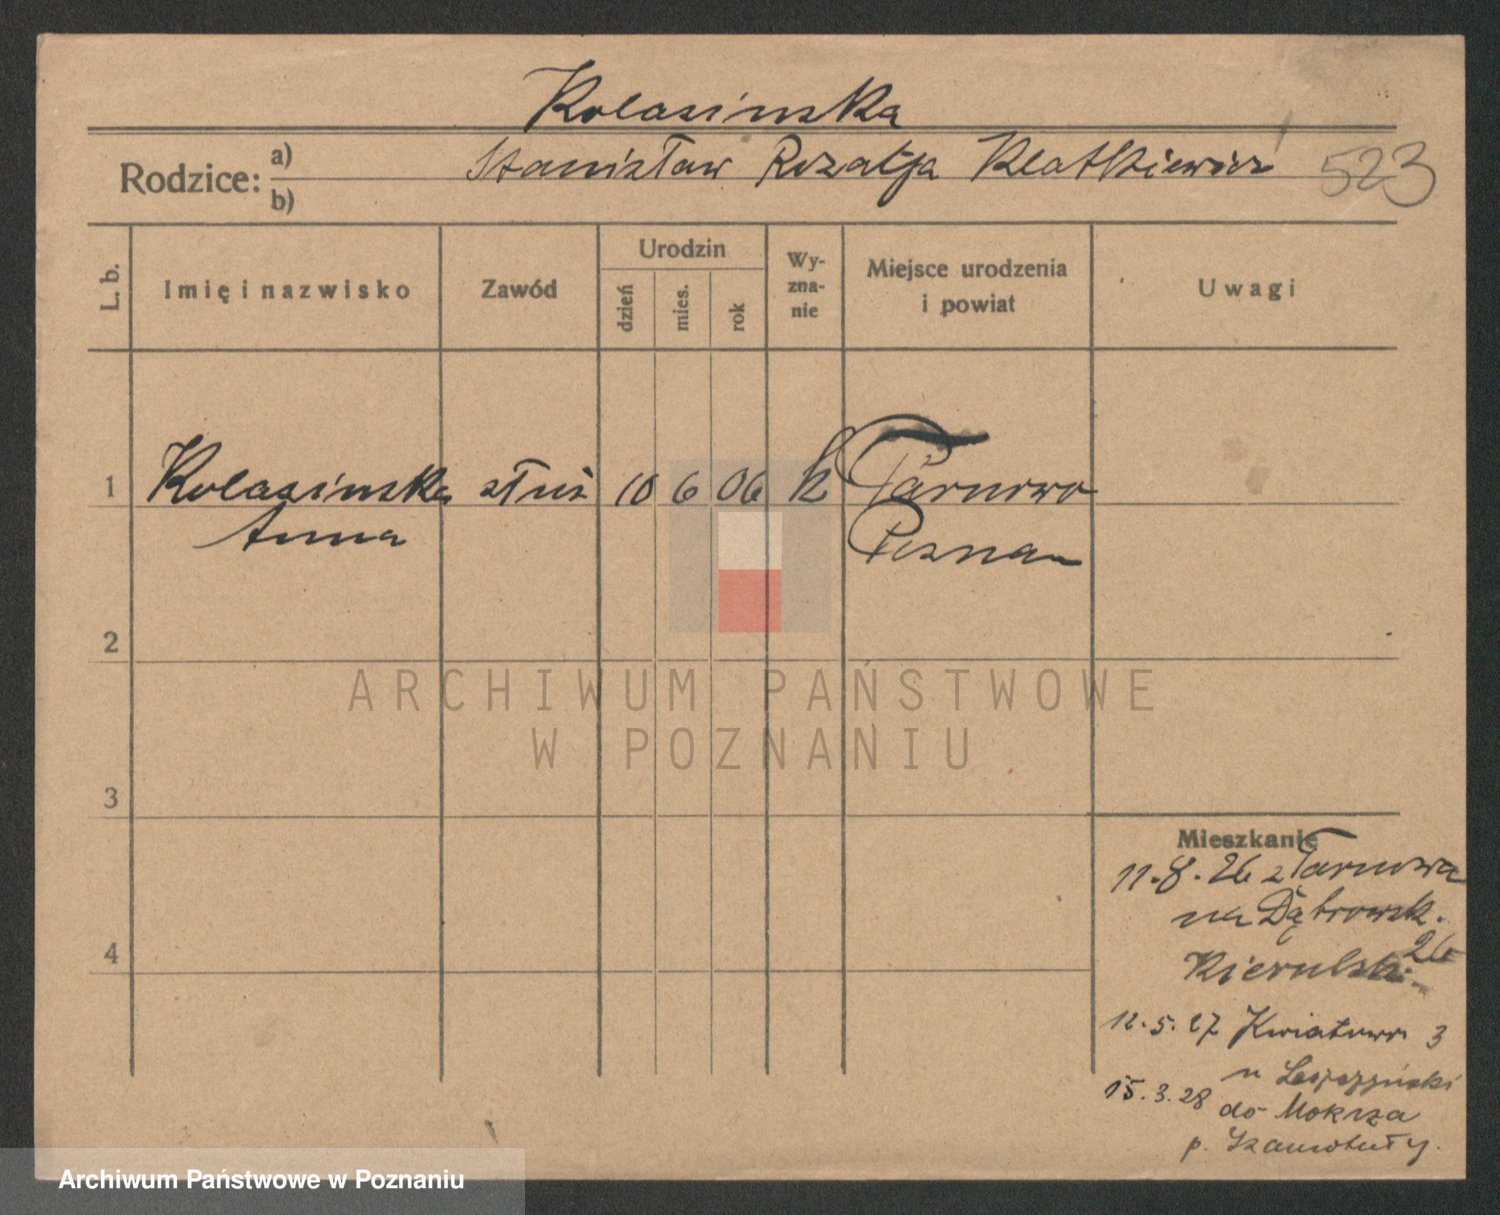 Kolasinska
Rodzice: a) Stanisław Rozalja Klatkiewicz 523
b)
L. b. Imię i nazwisko Zawód Urodzin dzień mies. rok Wy-zna-nie Miejsce urodzenia i powiat Uwagi
1 Kolasinska służ 10 6 06 k Tarnowo
Anna Poznan
2
ARCHIWUM PAŃSTWOWE
W POZNANIU
3
Mieszkanie
11.8.26 z Tarnowa
na Dąbrowsk. 26
12.5.27 Kwiatowa 3
u
15.3.28 do Mokrza
p. Szamotuły.
4
Archiwum Państwowe w Poznaniu